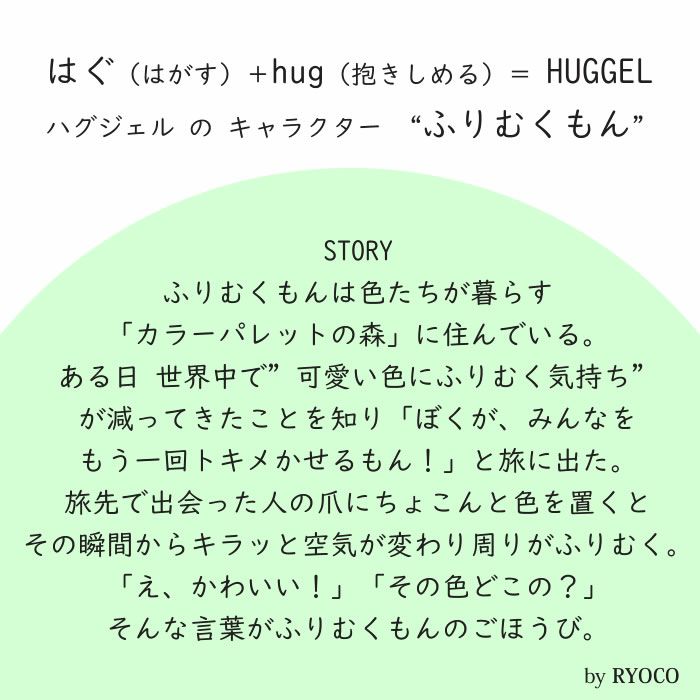 はぐ（はがす）＋hug（抱きしめる）＝ HUGGEL
ハグジェル の キャラクター “ふりむくもん”
STORY
ふりむくもんは色たちが暮らす
「カラーパレットの森」に住んでいる。
ある日 世界中で” 可愛い色にふりむく気持ち”
が減ってきたことを知り「ぼくが、みんなを
もう一回トキメかせるもん！」と旅に出た。
旅先で出会った人の爪にちょこんと色を置くと
その瞬間からキラッと空気が変わり周りがふりむく。
「え、かわいい！」「その色どこの？」
そんな言葉がふりむくもんのごほうび。
by RYOCO